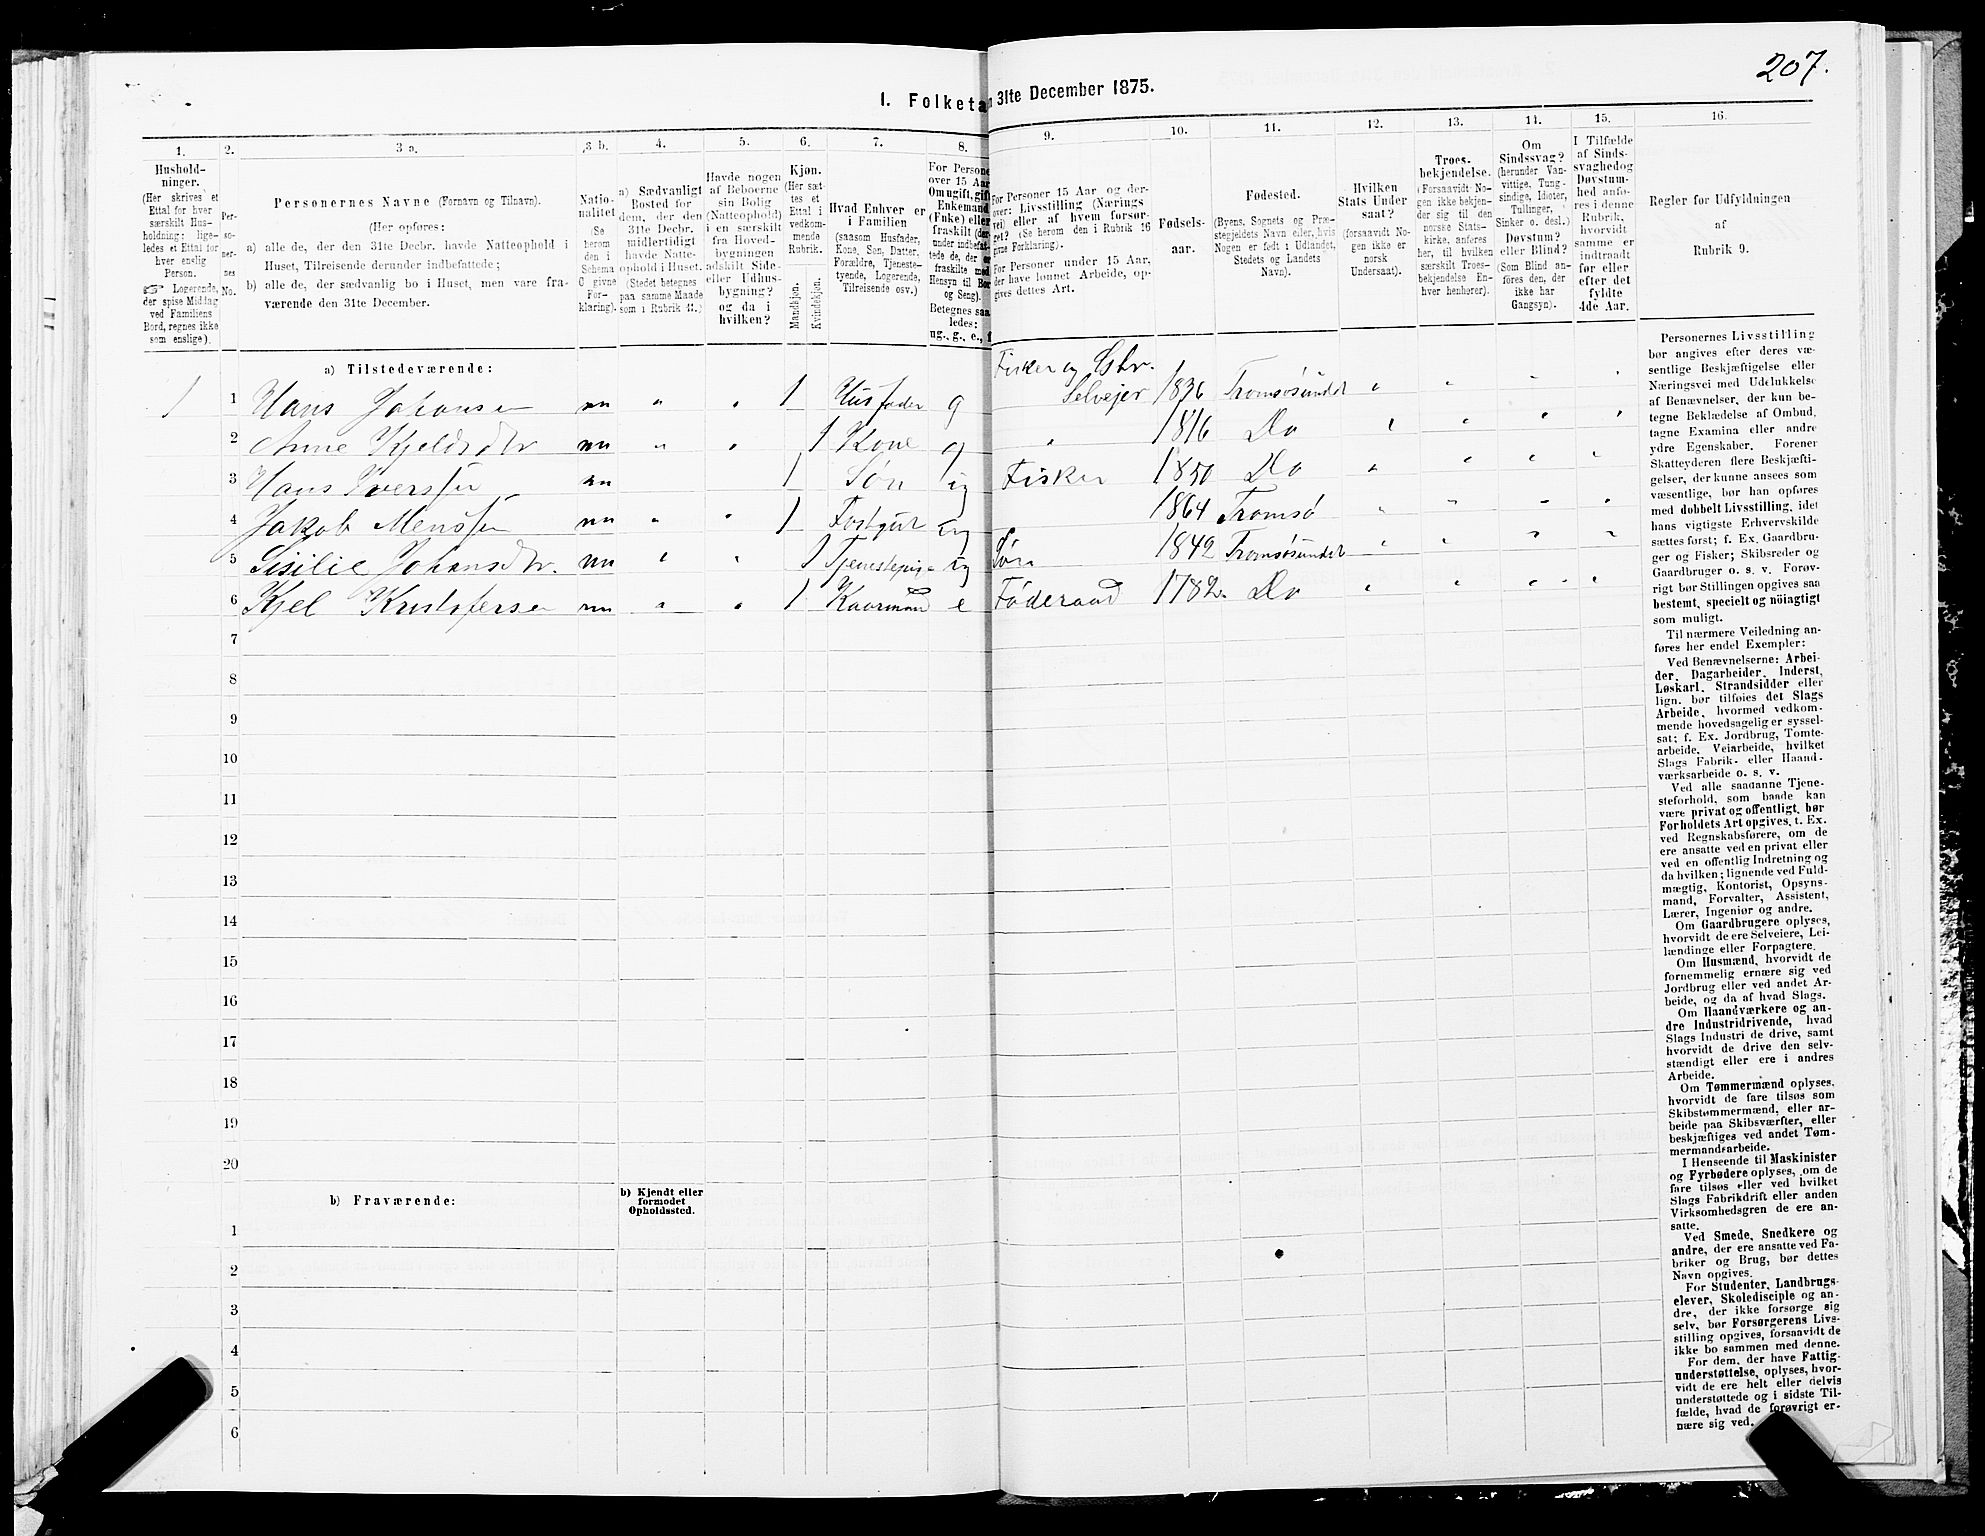 207.
I. Folketa n 31te December 1875.
1. 2. 3 a. 3 b. 4. 5. 6. 7. 8. 9. 10. 11. 12. 13. 14. 15. 16.
Hushold-
ninger.
(Her skrives et
Ettal for hver
særskilt Hus-
holdning; lige-
ledes et Ettal for
hver enslig
Person.
☞ Logerende,
der spise Middag
ved Familiens
Bord, regnes ikke
som enslige).
Per-
so-
ner-
nes
No.
Personernes Navne (Fornavn og Tilnavn).
(Her opføres:
a) alle de, der den 31te Decbr. havde Natteophold i
Huset, Tilreisende derunder indbefattede;
b) alle de, der sædvanlig bo i Huset, men vare fra-
værende den 31te December.
Natio-
nalitet
(Se
herom
den i
Schema
C givne
For-
klaring).
a) Sædvanligt
Bosted for
dem, der den
31te Decbr.
midlertidigt
havde Natte-
ophold i Huset.
(Stedet betegnes
paa samme Maade
som i Rubrik 11.)
Havde nogen
af Beboerne
sin Bolig
(Natteophold)
i en særskilt
fra Hoved-
bygningen
adskilt Side-
eller Udhus-
bygning?
og da i
hvilken?
Kjøn.
(Her sæt-
tes et
Ettal i
vedkom-
mende
Rubrik.
Mandkjøn.
Kvindekjøn.
Hvad Enhver er
i Familien
(saasom Husfader,
Kone, Søn, Datter,
Forældre, Tjeneste-
tyende, Logerende,
Tilreisende osv.)
For Persone
over 15 Aar
Om ugift, gift
Enkemand
(Enke) eller
fraskilt (der-
under indbefat-
tede de, der er
fraskilte med
Hensyn til Bor
og Seng).
Betegnes saa
ledes:
ug., g., e., f
For Personer 15 Aar og der-
over: Livsstilling (Nærings
vei) eller af hvem forsør-
get? (Se herom den i Rubrik 16
givne Forklaring).
For Personer under 15 Aar,
der have lønnet Arbeide, op-
gives dettes Art.
Fødsels-
aar.
Fødested.
(Byens, Sognets og Præ-
stegjeldets Navn eller, hvis
Nogen er født i Udlandet,
Stedets og Landets
Navn).
Hvilken
Stats Under
saat?
(forsaavidt No-
gen ikke er
norsk
Undersaat).
Troes-
bekjendelse.
(Forsaavidt No-
gen ikke bekjen-
der sig til den
norske Stats-
kirke, anføres
her, til hvilken
særskilt Troes-
bekjendelse En-
hver henhører).
Om
Sindssvag?
(herunder Van-
vittige, Tung-
sindige, Idioter,
Tullinger,
Sinker o. desl.)
Døvstum?
eller Blind?
(Som Blind an-
føres den, der
ikke har
Gangsyn).
I Tilfælde
af Sinds-
svaghed og
Døvstum-
hed anfø-
res i denne
Rubrik,
hvorvidt
samme er
indtraadt
før eller
efter det
fyldte
4de Aar.
Regler for Udfyldningen
af
Rubrik 9.
a) Tilstedeværende:
Fisker og Gbr.
1 1 Hans Johansen nn " " 1 Husfader g Selveier 1836 Tromsøsundet " " " "
2 Anne Kjeldsdtr nn " " 1 Kone g " 1816 Do " " " "
3 Hans Iversen nn 1 Søn ug Fisker 1850 Do " " " "
4 Jakob Mensen nn " " 1 Fostgut ug 1864 Tromsø " " " "
5 Sisilie Johansdtr. nn " " 1 Tjenestepige ug 1842 Tromsøsundet " " " "
6 Kjel Kristofersen nn " " 1 Kaarmand e Føderaad 1782. Do " " " "
7
8
9
10
11
12
13
14
15
16
17
18
19
20
b) Fraværende:
b) Kjendt eller
formodet
Opholdssted.
1
2
3
4
5
6
Personernes Livsstilling
bør angives efter deres væ-
sentlige Beskjæftigelse eller
Næringsvei med Udelukkelse
af Benævnelser, der kun be-
tegne Beklædelse af Ombud,
tagne Examina eller andre
ydre Egenskaber. Forener
Skatteyderen flere Beskjæfti-
gelser, der kunne ansees som
væsentlige, bør han opføres
med dobbelt Livsstilling, idet
hans vigtigste Erhvervskilde
sættes først; f. Ex. Gaardbru-
ger og Fisker; Skibsreder og
Gaardbruger o. s. v. Forøv-
rigt bør Stillingen opgives saa
bestemt, specielt og nöiagtigt
som muligt.
Til nærmere Veiledning an-
føres her endel Exempler:
Ved Benævnelserne: Arbei-
der, Dagarbeider, Inderst,
Løskarl, Strandsidder eller
lign. bør tilføies det Slags
Arbeide, hvormed vedkom-
mende hovedsagelig er syssel-
sat; f. Ex. Jordbrug, Tomte-
arbeide, Veiarbeide, hvilket
Slags Fabrik- eller Haand-
værksarbeide o. s. v.
Ved alle saadanne Tjene-
steforhold, som baade kan
være privat og offentligt, bør
Forholdets Art opgives, t. Ex.
ved Regnskabsførere, om de
ere ansatte ved en privat eller
ved en offentlig Indretning og
da hvilken; lignende ved Fuld-
mægtig, Kontorist, Opsyns-
mand, Forvalter, Assistent,
Lærer, Ingeniør og andre.
Om Gaardbrugere oplyses,
hvorvidt de ere Selveiere, Lei-
lændinge eller Forpagtere.
Om Husmænd, hvorvidt de
fornemmelig ernære sig ved
Jordbrug eller ved andet Ar-
beide, og da af hvad Slags.
Om Haandværkere og an-
dre Industridrivende, hvad
Slags Industri de drive, samt
hvorvidt de drive den selv-
stændigt eller ere i andres
Arbeide.
Om Tømmermænd oplyses,
hvorvidt de fare tilsøs som
Skibstømmermænd, eller ar-
beide paa Skibsværfter, eller
beskjæftiges ved andet Tøm-
mermandsarbeide.
I Henseende til Maskinister
og Fyrbødere oplyses, om de
fare tilsøs eller ved hvilket
Slags Fabrikdrift eller anden
Virksomhedsgren de ere an-
satte.
Ved Smede, Snedkere og
andre, der ere ansatte ved Fa-
briker og Brug, bør dettes
Navn opgives.
For Studenter, Landbrugs-
elever, Skoledisciple og an-
dre, der ikke forsørge sig
selv, bør Forsørgerens Livs-
stilling opgives, forsaavidt de
ikke bo sammen med denne.
For dem, der have Fattig-
understøttelse, oplyses, hvor-
vidt de ere helt eller delvis
understøttede og i sidste Til-
fælde, hvad de forøvrigt er-
nære sig ved.